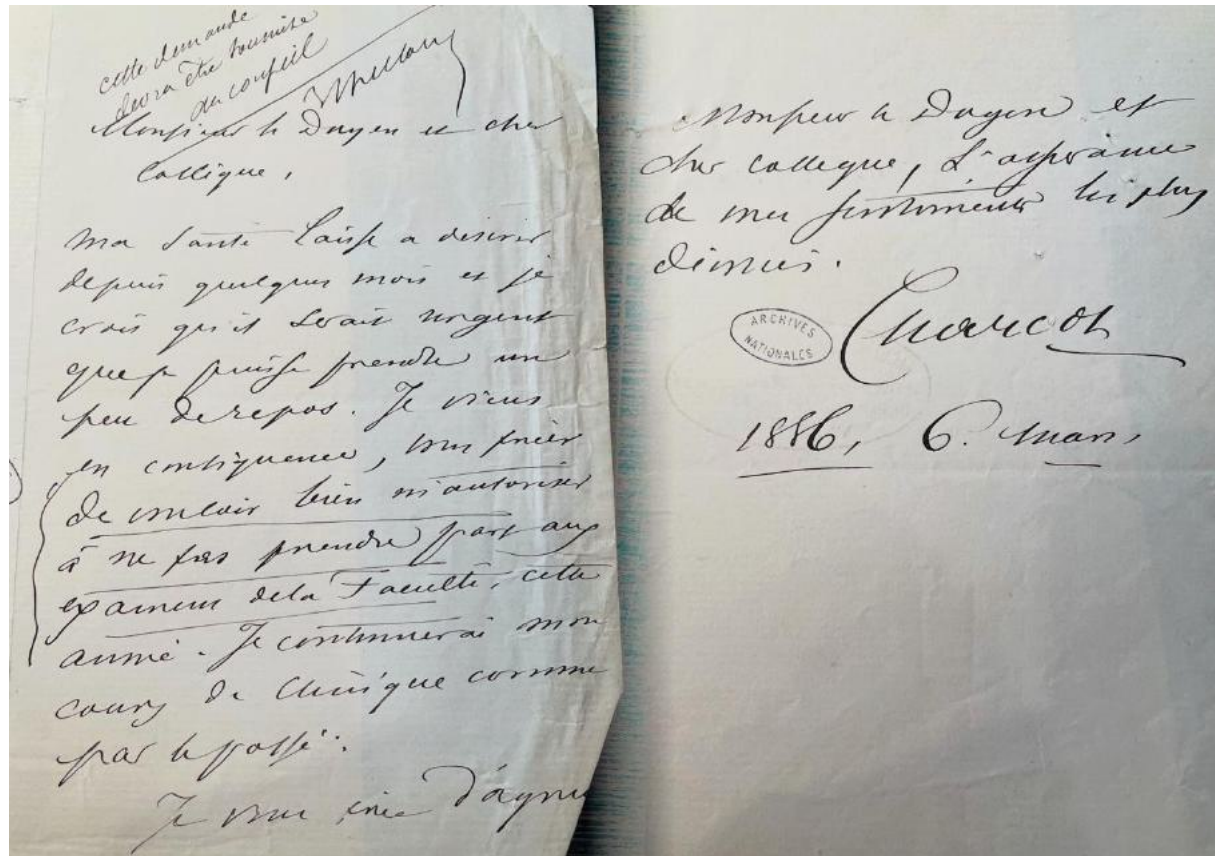 cette demande
devra être soumise
au conseil
Monsieur le Doyen et cher
Collègue,
Ma santé laisse a désirer
depuis quelques mois et je
crois qu'il serait urgent
que je puisse prendre un
peu de repos. Je viens
en conséquence, vous prier
de vouloir bien m'autoriser
à ne pas prendre part aux
examens de la Faculté, cette
année. Je continuerai mon
cours de Clinique comme
par le passé.
Je vous prie d'agréer
Monsieur le Doyen et
cher collegue, L'assurance
de mes sentiments les plus
dévoués.
Charcot
ARCHIVES
NATIONALES
1886, 6. Mars,